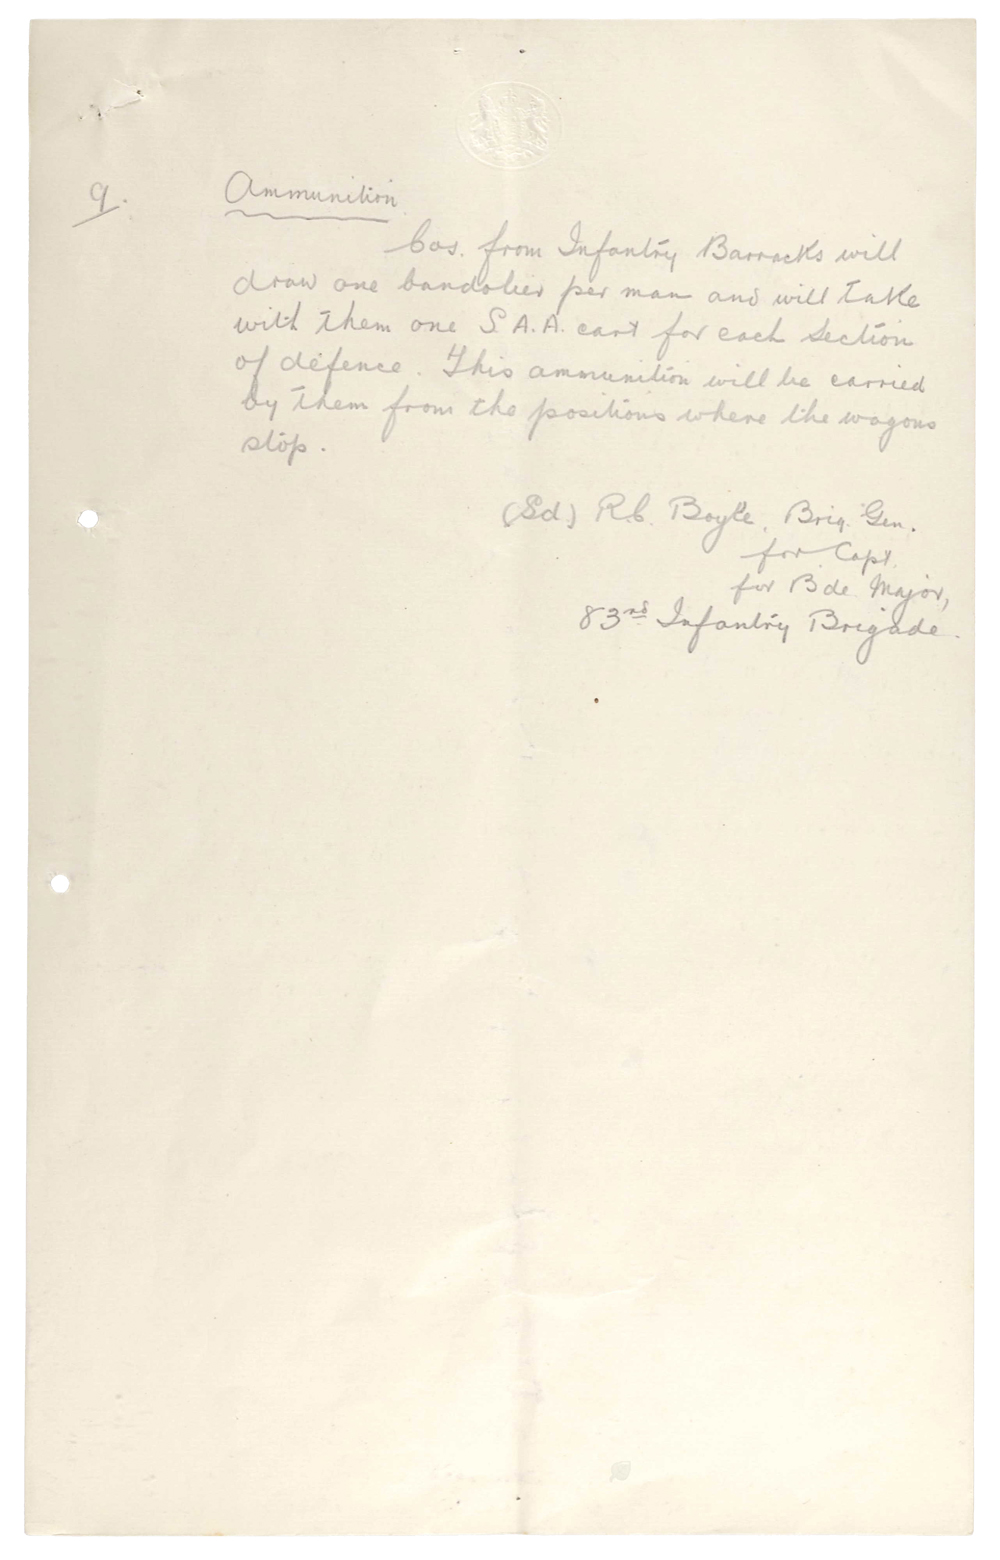 9. Ammunition
Cos. from Infantry Barracks will
draw one bandolier per man and will take
with them one S.A.A. cart for each section
of defence. This ammunition will be carried
by them from the positions where the wagons
stop.
(Sd) R.C. Boyle, Brig. Gen.
for Capt.
for Bde Major,
83rd Infantry Brigade.